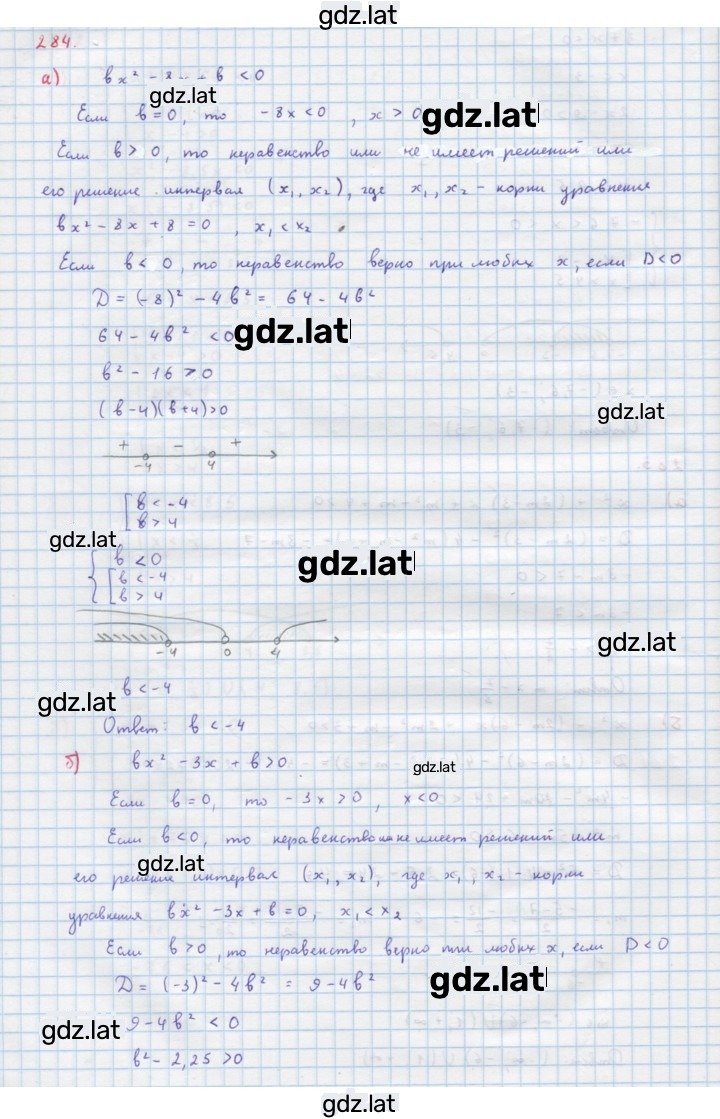 gdz.lat
284.
а) bx² - 8 + b < 0
gdz.lat
Если b = 0, то -8x < 0, x > 0
gdz.lat
Если b > 0, то неравенство или не имеет решений или
его решение интервал (x₁, x₂), где x₁, x₂ - корни уравнения
bx² - 8x + 8 = 0, x₁ < x₂
Если b < 0, то неравенство верно при любых x, если D < 0
D = (-8)² - 4b² = 64 - 4b²
64 - 4b² < 0
gdz.lat
b² - 16 > 0
(b-4)(b+4)>0
gdz.lat
+ - +
-4 4
b < -4
b > 4
gdz.lat
b < 0
gdz.lat
b < -4
b > 4
-4 0 4
gdz.lat
b < -4
gdz.lat
Ответ: b < -4
б) bx² - 3x + b > 0
gdz.lat
Если b = 0, то -3x > 0, x < 0
Если b < 0, то неравенство или не имеет решений или
gdz.lat
его решение интервал (x₁, x₂), где x₁, x₂ - корни
уравнения bx² - 3x + b = 0, x₁ < x₂
Если b > 0, то неравенство верно при любых x, если D < 0
D = (-3)² - 4b² = 9 - 4b²
gdz.lat
9 - 4b² < 0
gdz.lat
b² - 2,25 > 0
gdz.lat